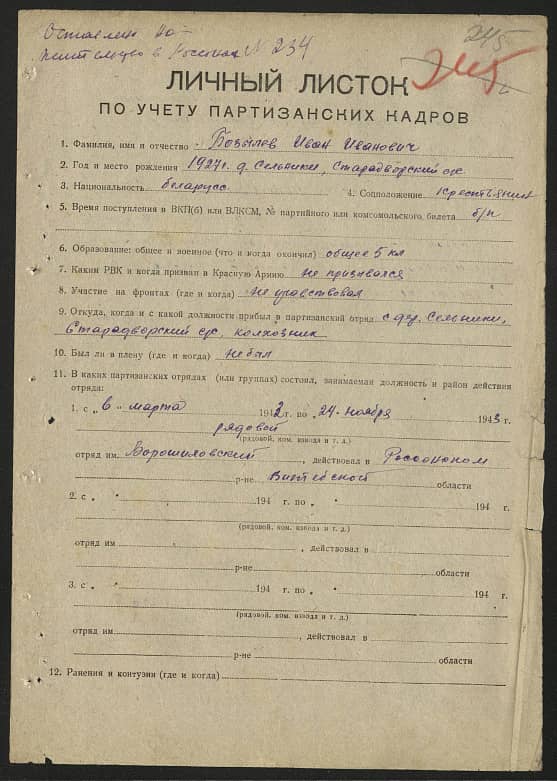 Оставлен на
жительство в Россонах № 234
245
245
ЛИЧНЫЙ ЛИСТОК
ПО УЧЕТУ ПАРТИЗАНСКИХ КАДРОВ
1. Фамилия, имя и отчество Бобылев Иван Иванович
2. Год и место рождения 1927г. д. Сельники, Старадворский с/с
3. Национальность беларусс 4. Соцположение Крестьянин
5. Время поступления в ВКП(б) или ВЛКСМ, № партийного или комсомольского билета б/п
6. Образование: общее и военное (что и когда окончил) общее 5 кл
7. Каким РВК и когда призван в Красную Армию не призывался
8. Участие на фронтах (где и когда) не участвовал
9. Откуда, когда и с какой должности прибыл в партизанский отряд с дер. Сельники,
Старадворский с/с, колхозник
10. Был ли в плену (где и когда) не был
11. В каких партизанских отрядах (или группах) состоял, занимаемая должность и район действия
отряда:
1. с „6" марта 1942 г. по „24" ноября 1943 г.
рядовой
(рядовой, ком. взвода и т. д.)
отряд им. Ворошиловский , действовал в Россонском
р-не Витебской области
2. с „ " 194 г. по „ " 194 г.
(рядовой, ком. взвода и т. д.)
отряд им , действовал в
р-не области
3. с „ " 194 г. по „ " 194 г.
(рядовой, ком. взвода и т. д.)
отряд им , действовал в
р-не области
12. Ранения и контузии (где и когда)